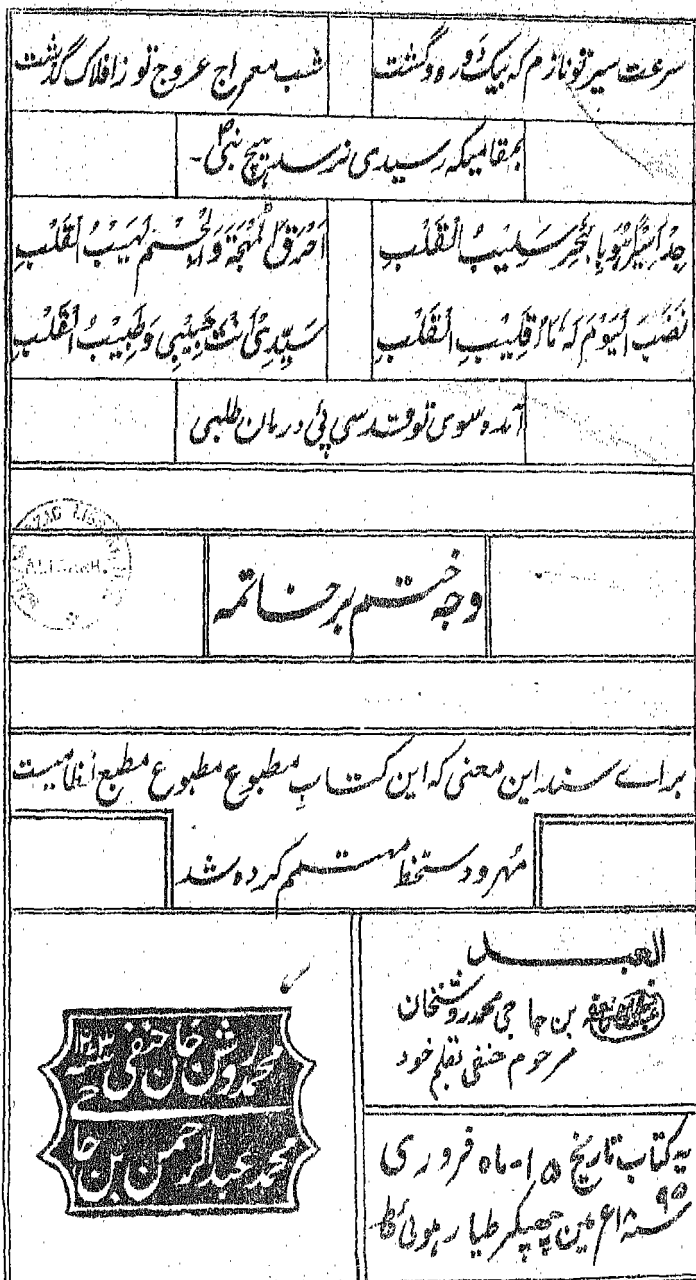 سرعت سیر تو نازم که بیک دوره و گشت شب معراج عروج تو ز افلاک گذشت
بمقامیکه رسیدی نرسد ہیچ نبیؐ۔
سَلِیبُ القَلْبِ اَحْرَقَ المُهْجَةَ وَالْجِسْمَ لَهِیبُ القَلْبِ
الیَوْمَ القَلْبِ سَیِّدِی اَنْتَ حَبِیبِی وَطَبِیبُ القَلْبِ
آمده سوی تو قدسی پئی درمان طلبی
وجه ختم بر خاتمه
براے سند این معنی که این کتاب مطبوع مطبوع مطبع نظامیست
مُهر و دستخط مهتمم کرده شد
العبد
بن حاجی محمد روشنخان
مرحوم حنفی بقلم خود
محمد روشن خان حنفی سنه
محمد عبدالرحمن بن حاجی
یه کتاب تاریخ ۱۵- ماه فروری
سنه ۱۸۹۵ع مین چھپکر طیار ہوئی فقط